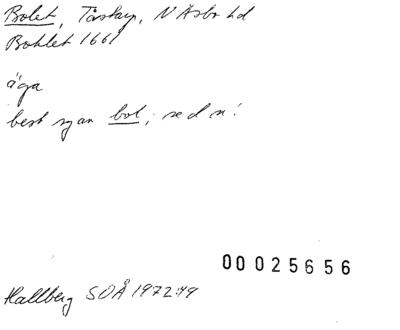 Bolet, Tåstarp, N Åsbo hd
Bohlet 1661
äga
best sg an bol; se d n!
00025656
Hallberg SOÅ 1972:49